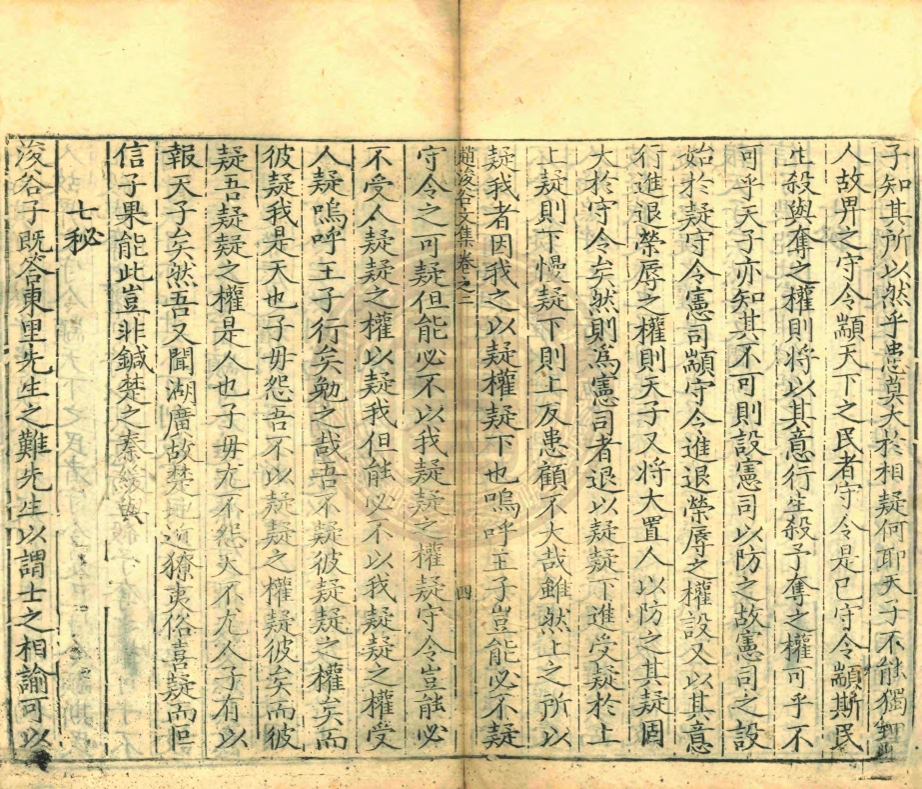 子知其所以然乎患莫大於相疑何耶天子不能獨理
人故畀之守令顓天下之民者守令是已守令顓斯民
生殺與奪之權則將以其意行生殺予奪之權可乎不
可乎天子亦知其不可則設憲司以防之故憲司之設
始於疑守令憲司顓守令進退榮辱之權設又以其意
行進退榮辱之權則天子又將大置人以防之其疑固
大於守令矣然則為憲司者退以疑疑下進受疑於上
上疑則下慢疑下則上反患顧不大哉雖然上之所以
疑我者因我之以疑權疑下也嗚呼王子豈能必不疑
趙浚谷文集卷之二 四
守令之可疑但能必不以我疑疑之權疑守令豈能必
不受人疑疑之權以疑我但能必不以我疑疑之權受
人疑嗚呼王子行矣勉之哉吾不疑彼疑疑之權矣而
彼疑我是天也子毋怨吾不以疑疑之權疑彼矣而彼
疑吾疑疑之權是人也子毋尤不怨天不尤人子有以
報天子矣然吾又聞湖廣故楚獠夷俗喜疑而叵
信子果能此豈非鍼楚之秦緩與
七秘
浚谷子既答東里先生之難先生以謂士之相諭可以